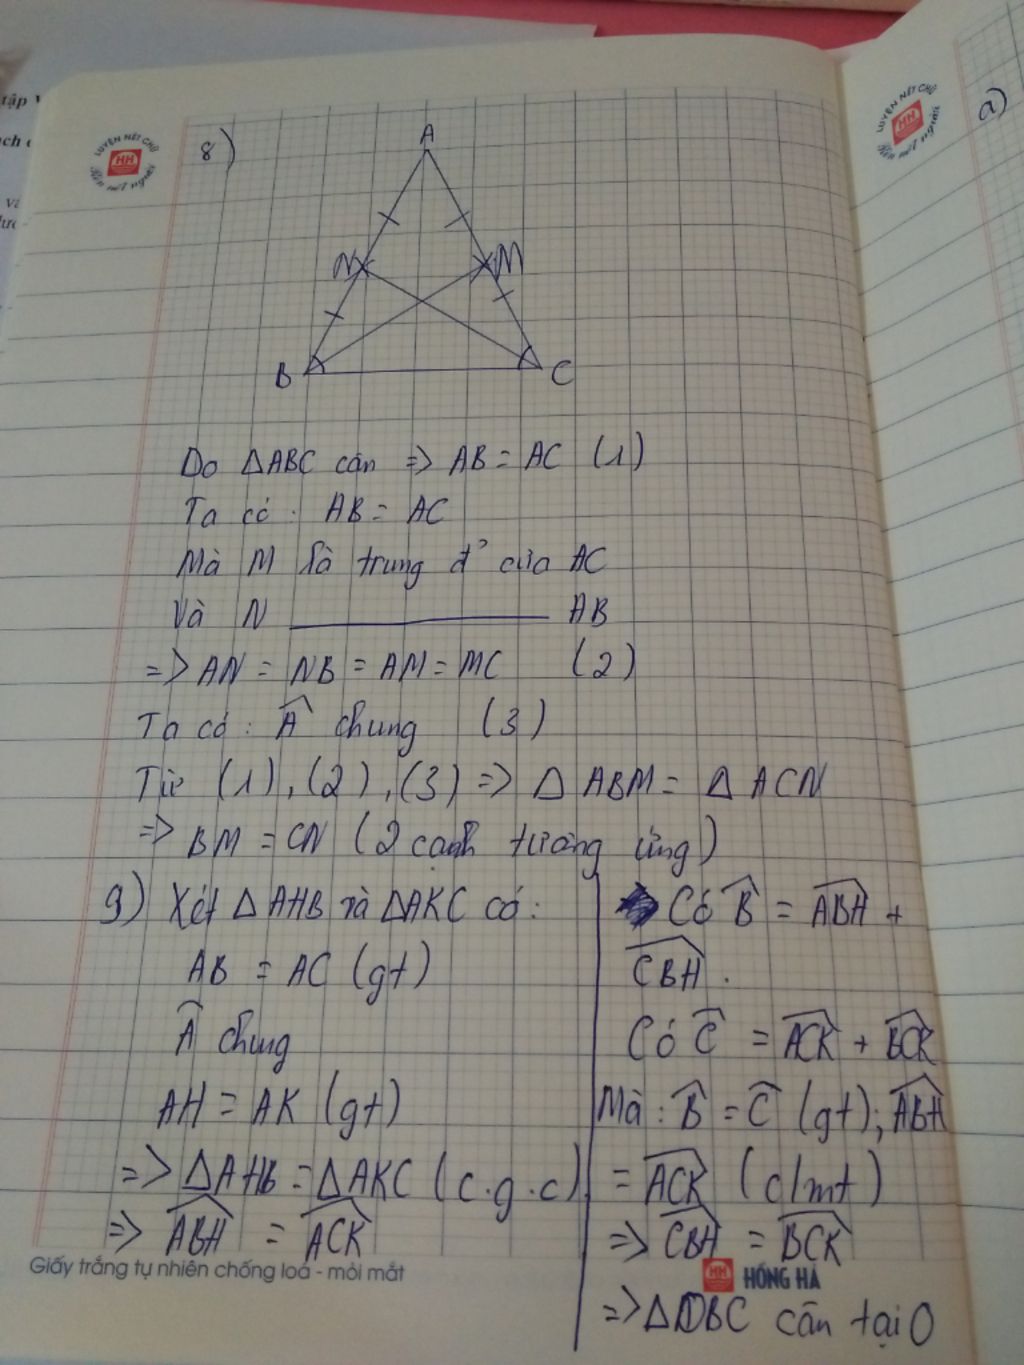 tập V
LUYỆN NÉT CHỮ
HH
Rèn nết người
8)
A
N
M
B
C
Do ΔABC cân => AB = AC (1)
Ta có : AB = AC
Mà M là trung đ² của AC
Và N ________ AB
=> AN = NB = AM = MC (2)
Ta có : Â chung (3)
Từ (1), (2), (3) => Δ ABM = Δ ACN
=> BM = CN (2 cạnh tương ứng)
9) Xét ΔAHB và ΔAKC có :
AB = AC (gt)
Â chung
AH = AK (gt)
=> ΔAHB = ΔAKC (c.g.c)
=> \widehat{ABH} = \widehat{ACK}
Có \widehat{B} = \widehat{ABH} +
\widehat{CBH} .
Có \widehat{C} = \widehat{ACK} + \widehat{BCK}
Mà : \widehat{B} = \widehat{C} (gt) ; \widehat{ABH}
= \widehat{ACK} (c/mt)
=> \widehat{CBH} = \widehat{BCK}
=> ΔOBC cân tại O
Giấy trắng tự nhiên chống loá - mỏi mắt
HH HỒNG HÀ
LUYỆN NÉT CHỮ
HH
Rèn nết người
a)